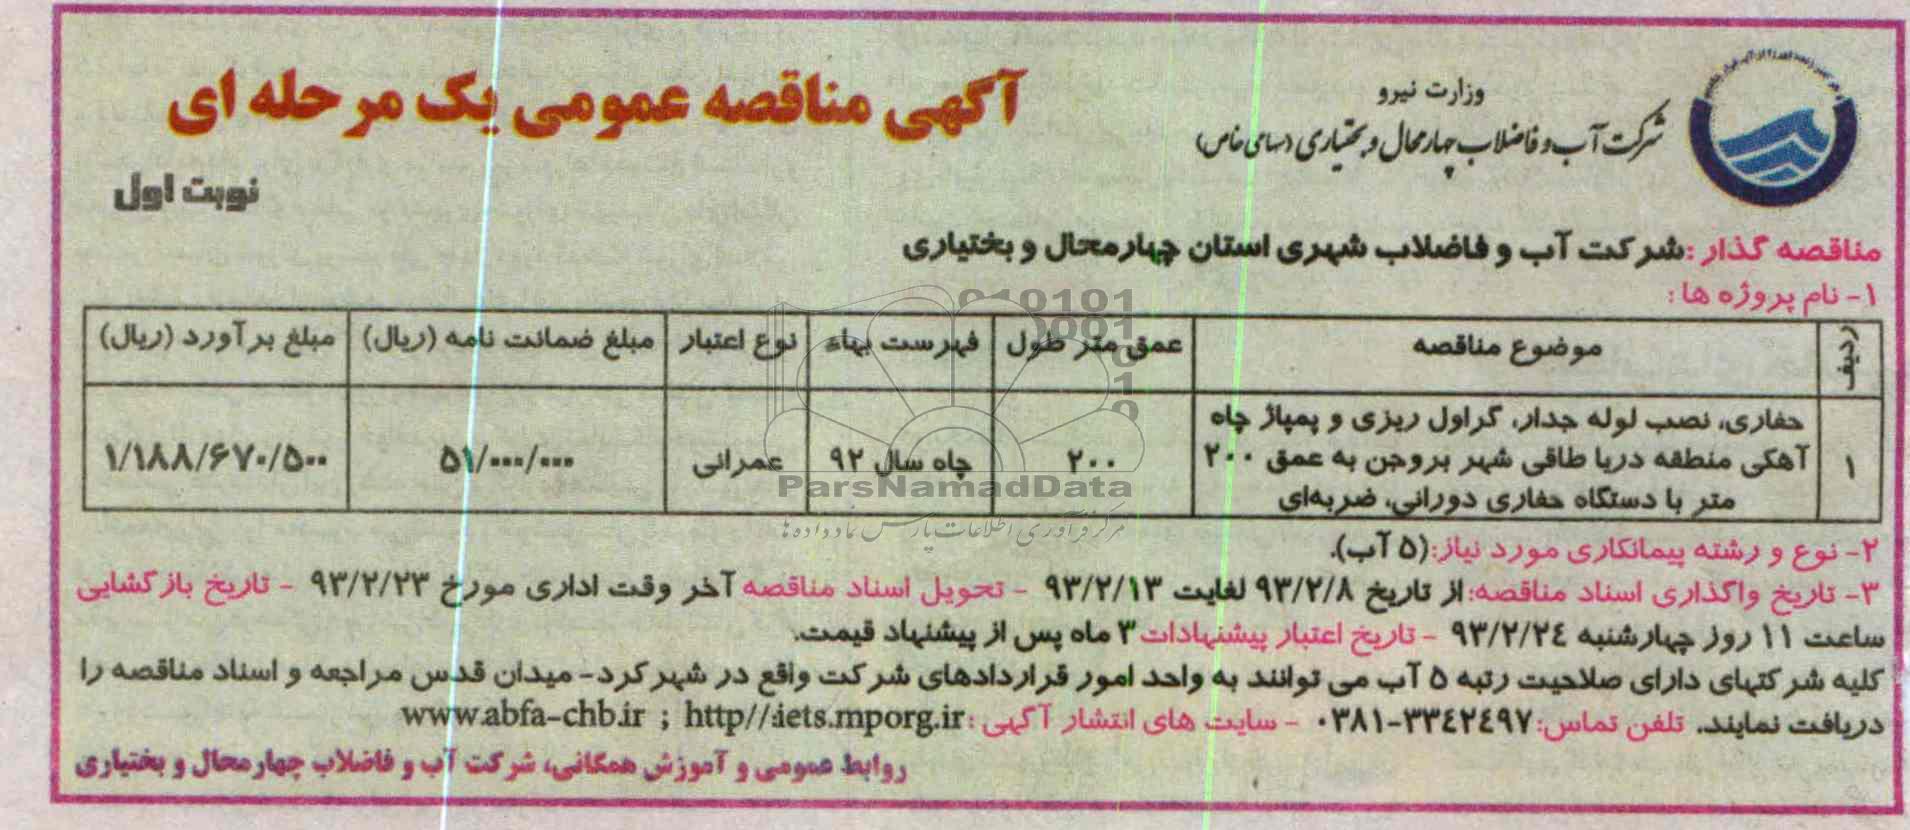 وزارت نیرو
شرکت آب و فاضلاب چهارمحال و بختیاری (سهامی خاص)
آگهی مناقصه عمومی یک مرحله ای
نوبت اول
مناقصه گذار: شرکت آب و فاضلاب شهری استان چهارمحال و بختیاری
۱- نام پروژه ها:
ردیف | موضوع مناقصه | عمق متر طول | فهرست بهاء | نوع اعتبار | مبلغ ضمانت نامه (ریال) | مبلغ برآورد (ریال)
۱ | حفاری، نصب لوله جدار، گراول ریزی و پمپاژ چاه آهکی منطقه دریا طاقی شهر بروجن به عمق ۲۰۰ متر با دستگاه حفاری دورانی، ضربه‌ای | ۲۰۰ | چاه سال ۹۲ | عمرانی | ۵۱/۰۰۰/۰۰۰ | ۱/۱۸۸/۶۷۰/۵۰۰
۲- نوع و رشته پیمانکاری مورد نیاز:(۵ آب).
۳- تاریخ واگذاری اسناد مناقصه: از تاریخ ۹۳/۲/۸ لغایت ۹۳/۲/۱۳ - تحویل اسناد مناقصه آخر وقت اداری مورخ ۹۳/۲/۲۳ - تاریخ بازگشایی
ساعت ۱۱ روز چهارشنبه ۹۳/۲/۲۴ - تاریخ اعتبار پیشنهادات ۳ ماه پس از پیشنهاد قیمت.
کلیه شرکتهای دارای صلاحیت رتبه ۵ آب می توانند به واحد امور قراردادهای شرکت واقع در شهرکرد- میدان قدس مراجعه و اسناد مناقصه را
دریافت نمایند. تلفن تماس: ۳۳۴۲۴۹۷-۰۳۸۱ - سایت های انتشار آگهی: http//:iets.mporg.ir ; www.abfa-chb.ir
روابط عمومی و آموزش همگانی، شرکت آب و فاضلاب چهارمحال و بختیاری
ParsNamadData
مرکز فرآوری اطلاعات پارس نماد داده ها